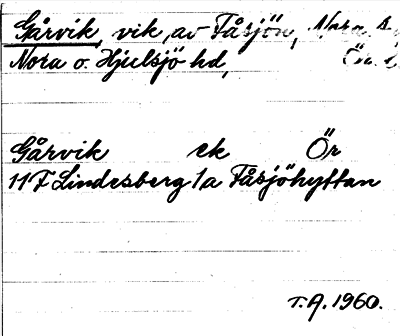 Gårvik, vik av Fåsjön, Nora s
Nora o. Hjulsjö hd, Ör. l
Gårvik ek Ör
11F Lindesberg 1a Fåsjöhyttan
T.A. 1960.